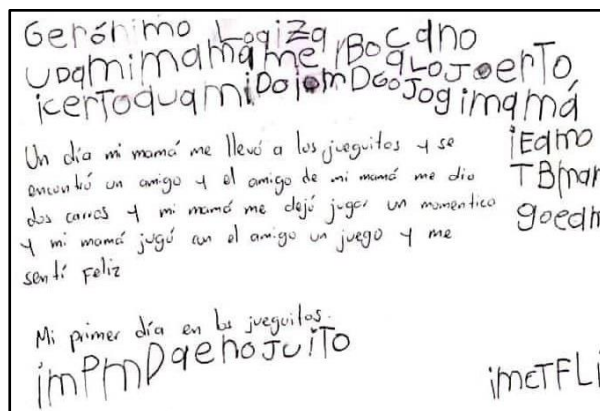 Gerónimo Loaiza
UDamimamáme Bocano
aLoJoerTo
icerToquamiDoiomDGoJogimamá
Un día mi mamá me llevó a los jueguitos y se
encontró un amigo y el amigo de mi mamá me dio
dos carros y mi mamá me dejó jugar un momentico
y mi mamá jugó con el amigo un juego y me
sentí Feliz
iEamo
TBmar
goedm
Mi primer día en los jueguitos.
imPmDaenoJuiTo
imeTFLi